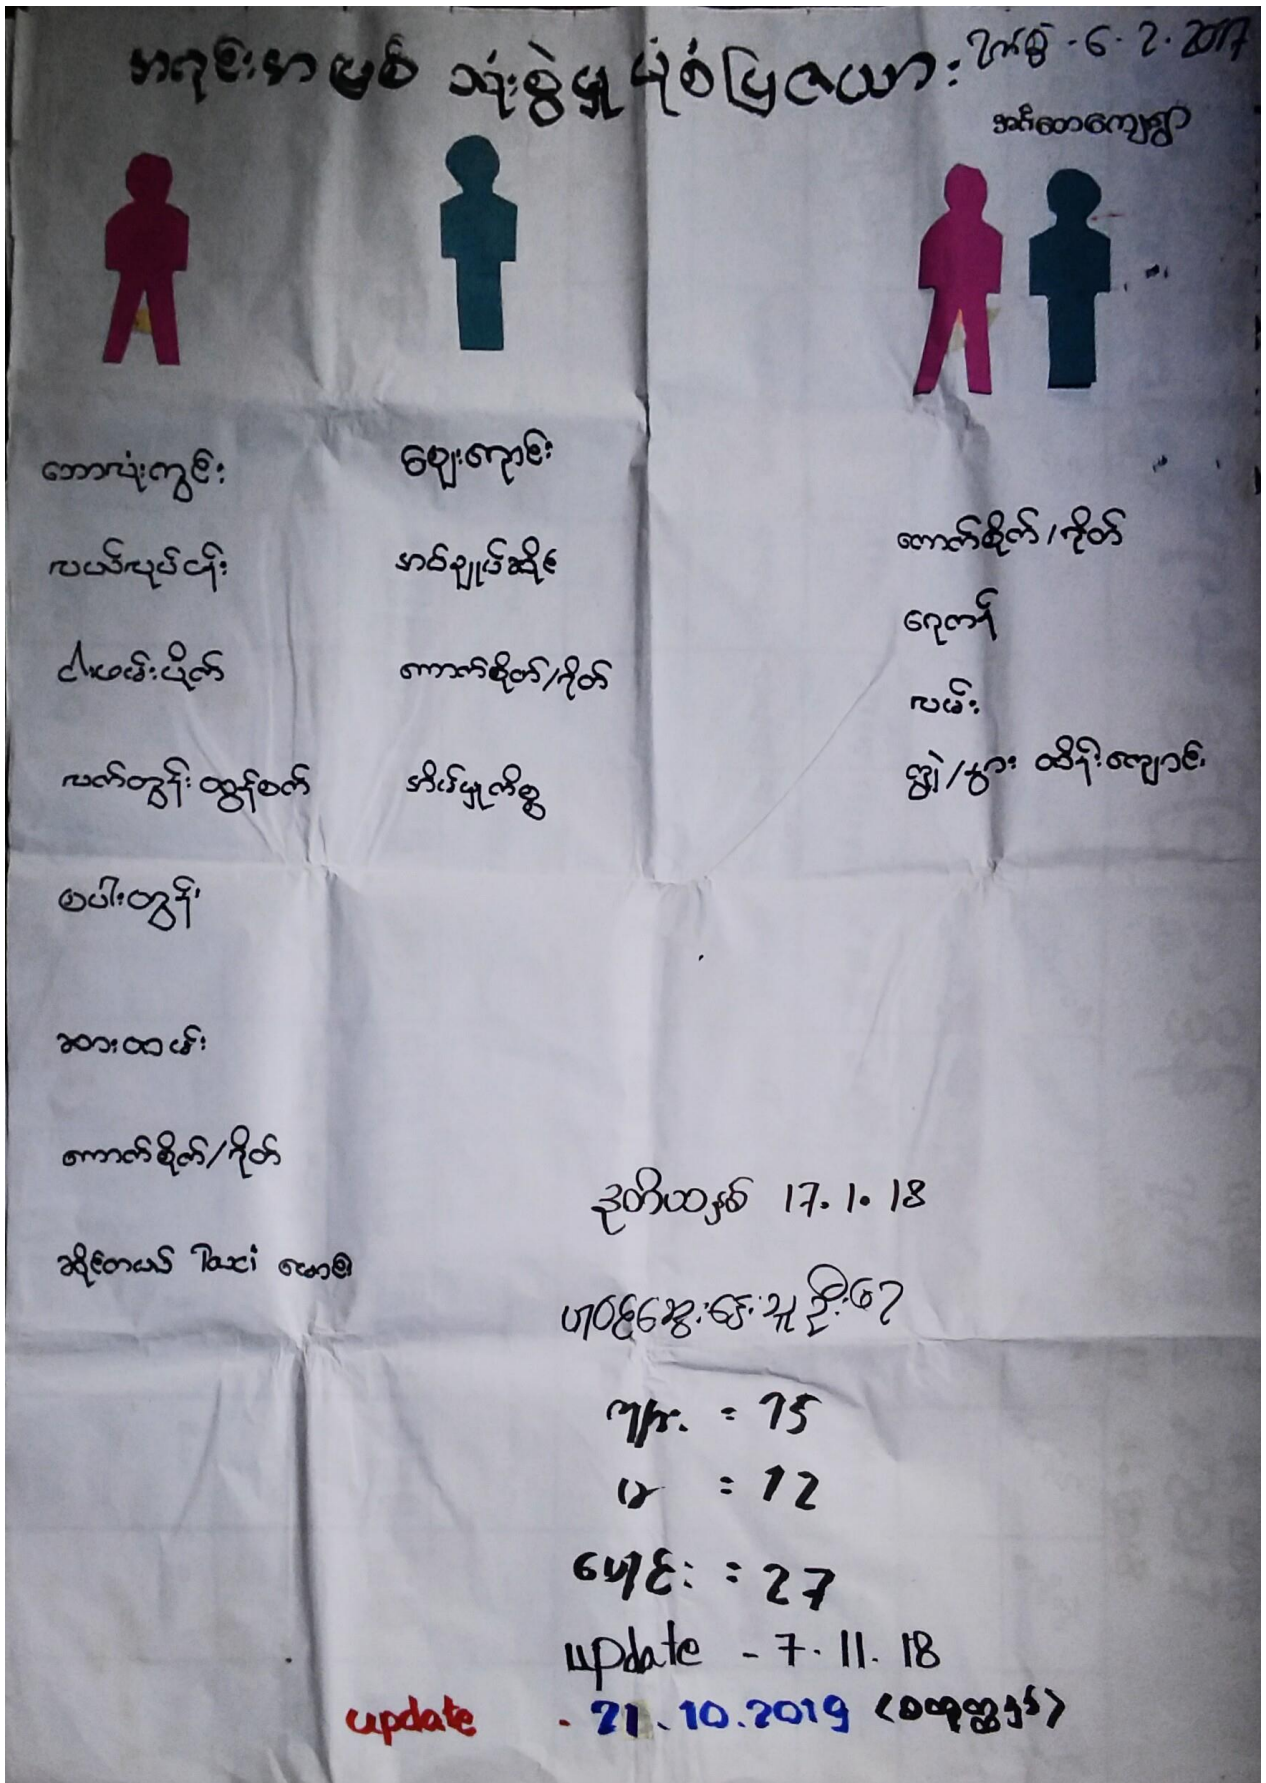 အရင်းအမြစ် သုံးစွဲမှု ပုံစံပြဇယား
ရက်စွဲ - 6. 2. 2017
ဘောလုံးကွင်း
လယ်လုပ်ငန်း
ငါးဖမ်းပိုက်
လက်တွန်း ထွန်စက်
စပါးတွန်း
ဆားထမ်း
ကောက်စိုက်/ရိတ်
ဆိုင်ကယ် Taxi မောင်း
ဈေးရောင်း
အပ်ချုပ်ဆိုင်
ကောက်စိုက်/ရိတ်
အိမ်မှုကိစ္စ
ကောက်စိုက်/ရိတ်
ရေကန်
လမ်း
ကျွဲ/နွား ထိန်းကျောင်း
ဒုတိယနှစ် 17. 1. 18
ပါဝင်ဆွေးနွေးသူဦးရေ
ကျား = 15
မ = 12
ပေါင်း = 27
update - 7. 11. 18
update - 21. 10. 2019 (စတုတ္ထနှစ်)